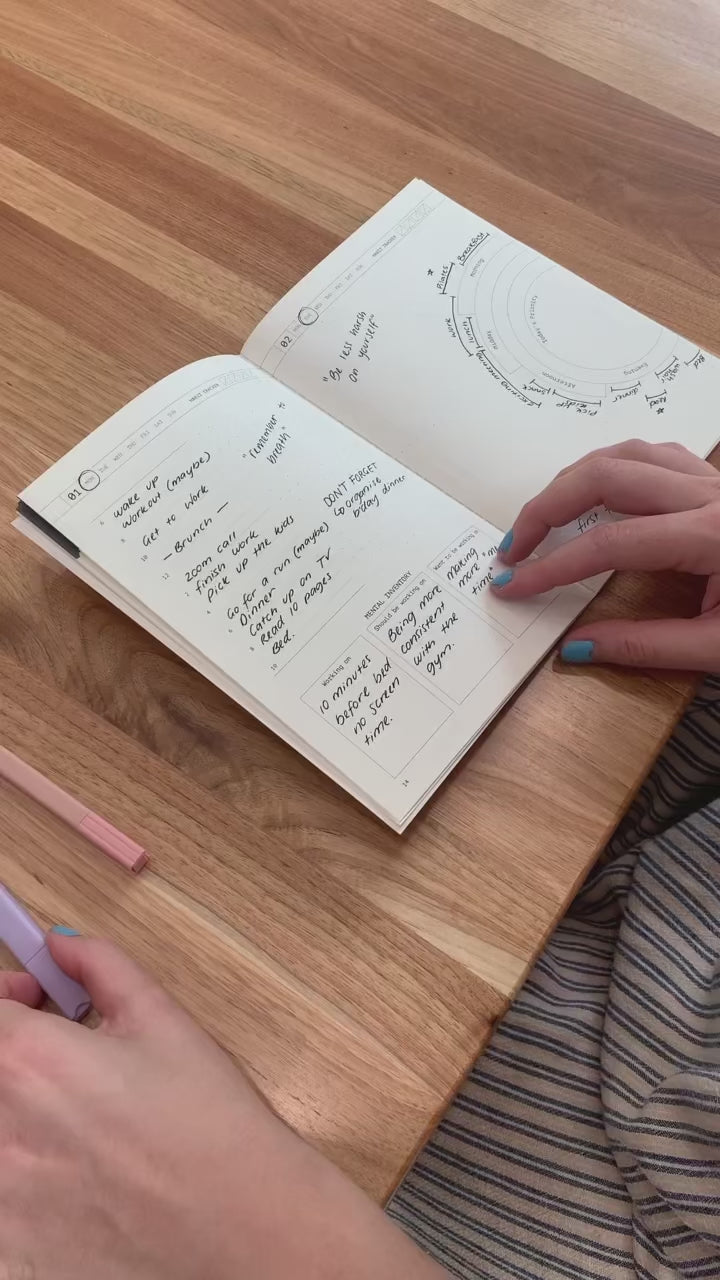 01 MON TUE WED THU FRI SAT SUN HABIT TRACKER
6 wake up
workout (maybe)
8
Get to work
10
- Brunch -
12
zoom call
2 finish work
Pick up the kids
4
Go for a run (maybe)
6 Dinner
Catch up on TV
8 Read 10 pages
Bed.
10
"remember to
breath"
DON'T FORGET
to organise
b'day dinner
MENTAL INVENTORY
Working on
10 minutes
before bed
no screen
time.
Should be working on
Being more
consistent
with the
gym.
Want to be working on
making
more "me
time"
14
02 MON TUE WED THU FRI SAT SUN HABIT TRACKER
"Be less harsh
on yourself"
Today's priority
Morning
Midday
Afternoon
Evening
Breakfast
* Pilates
work
lunch
Evening meeting
snack
Pick
kids up
dinner
* Read
wash
hair
Bed
first